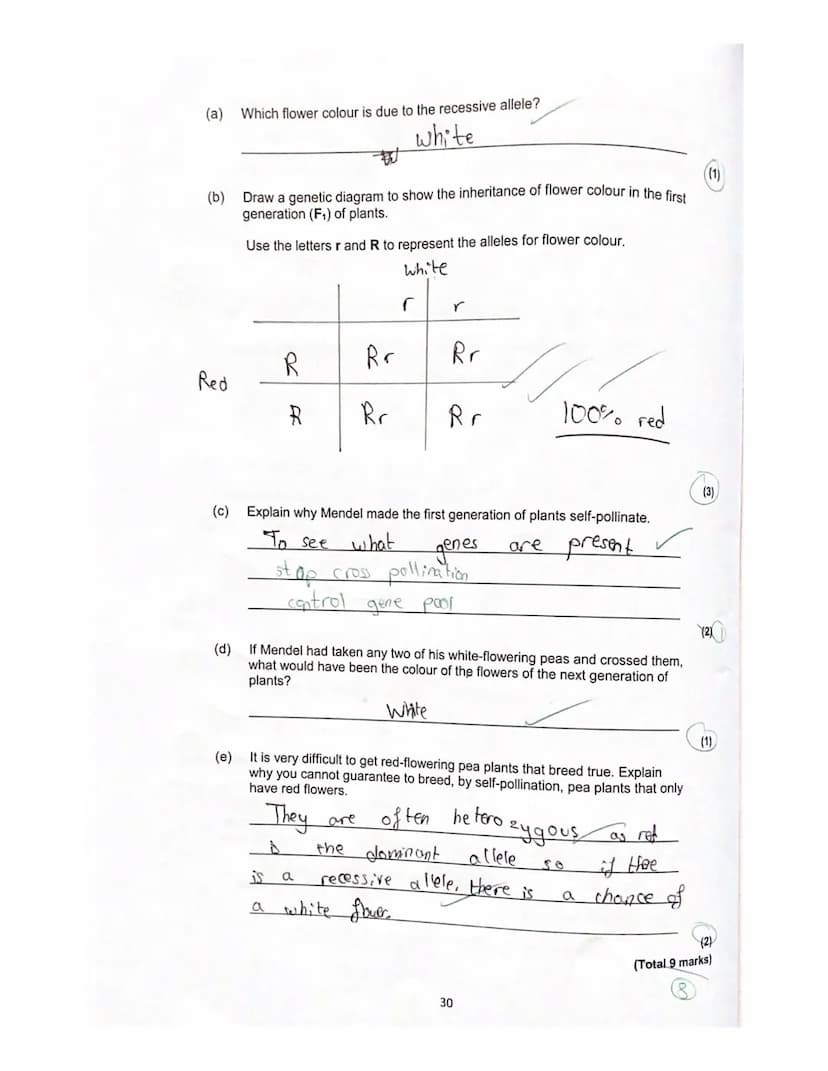 (a) Which flower colour is due to the recessive allele?
White
(1)
(b) Draw a genetic diagram to show the inheritance of flower colour in the first
generation (F₁) of plants.
Use the letters r and R to represent the alleles for flower colour.
White
r r
R Rr Rr
Red
R Rr Rr 100% red
(3)
(c) Explain why Mendel made the first generation of plants self-pollinate.
To see what genes are present
stop cross pollination
control gene pool
(2) 1
(d) If Mendel had taken any two of his white-flowering peas and crossed them,
what would have been the colour of the flowers of the next generation of
plants?
White
(1)
(e) It is very difficult to get red-flowering pea plants that breed true. Explain
why you cannot guarantee to breed, by self-pollination, pea plants that only
have red flowers.
They are often heterozygous as red
is the dominant allele so if there
is a recessive allele, there is a chance of
a white flower.
(2)
(Total 9 marks)
8
30